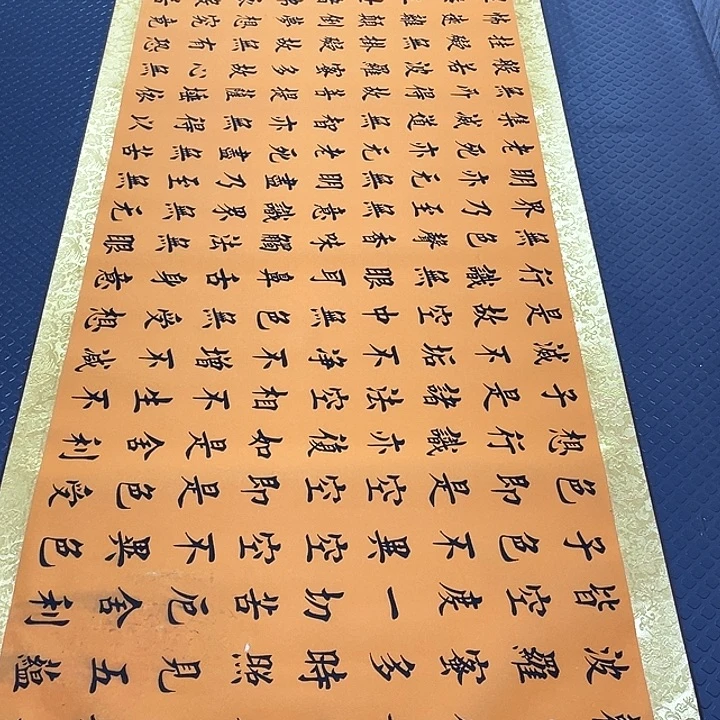 波羅蜜多時照見五蘊
皆空度一切苦厄舍利
子色不異空空不異色
色即是空空即是色受
想行識亦復如是舍利
子是諸法空相不生不
滅不垢不净不增不減
是故空中無色無受想
行識無眼耳鼻舌身意
無色聲香味觸法無眼
界乃至無意識界無无
明亦无無明盡乃至無
老死亦无老死盡無苦
集滅道無智亦無得以
無所得故菩提薩埵依
般若波羅蜜多故心無
挂礙無挂礙故無有恐
怖遠離顛倒夢想究竟